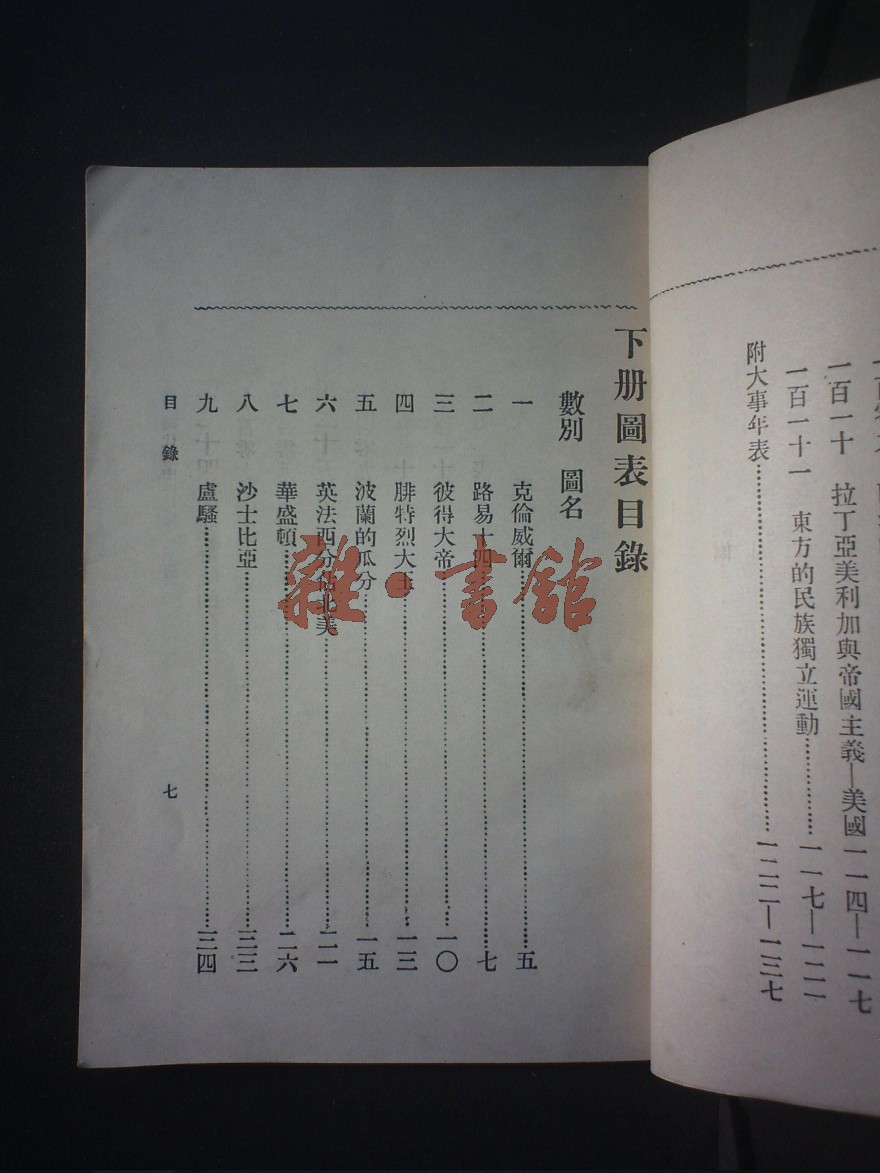 一百一十　拉丁亞美利加與帝國主義—美國一一四—一一七
一百一十一　東方的民族獨立運動…………一一七—一二一
附大事年表……………………………一二二—一三七
下册圖表目錄
數別　圖名
一　克倫威爾……………………………五
二　路易十四……………………………七
三　彼得大帝……………………………一〇
四　腓特烈大王…………………………一三
五　波蘭的瓜分…………………………一五
六　英法西分佔北美……………………二一
七　華盛頓………………………………二六
八　沙士比亞……………………………三三
九　盧騷…………………………………三四
目錄　七
雜·書館